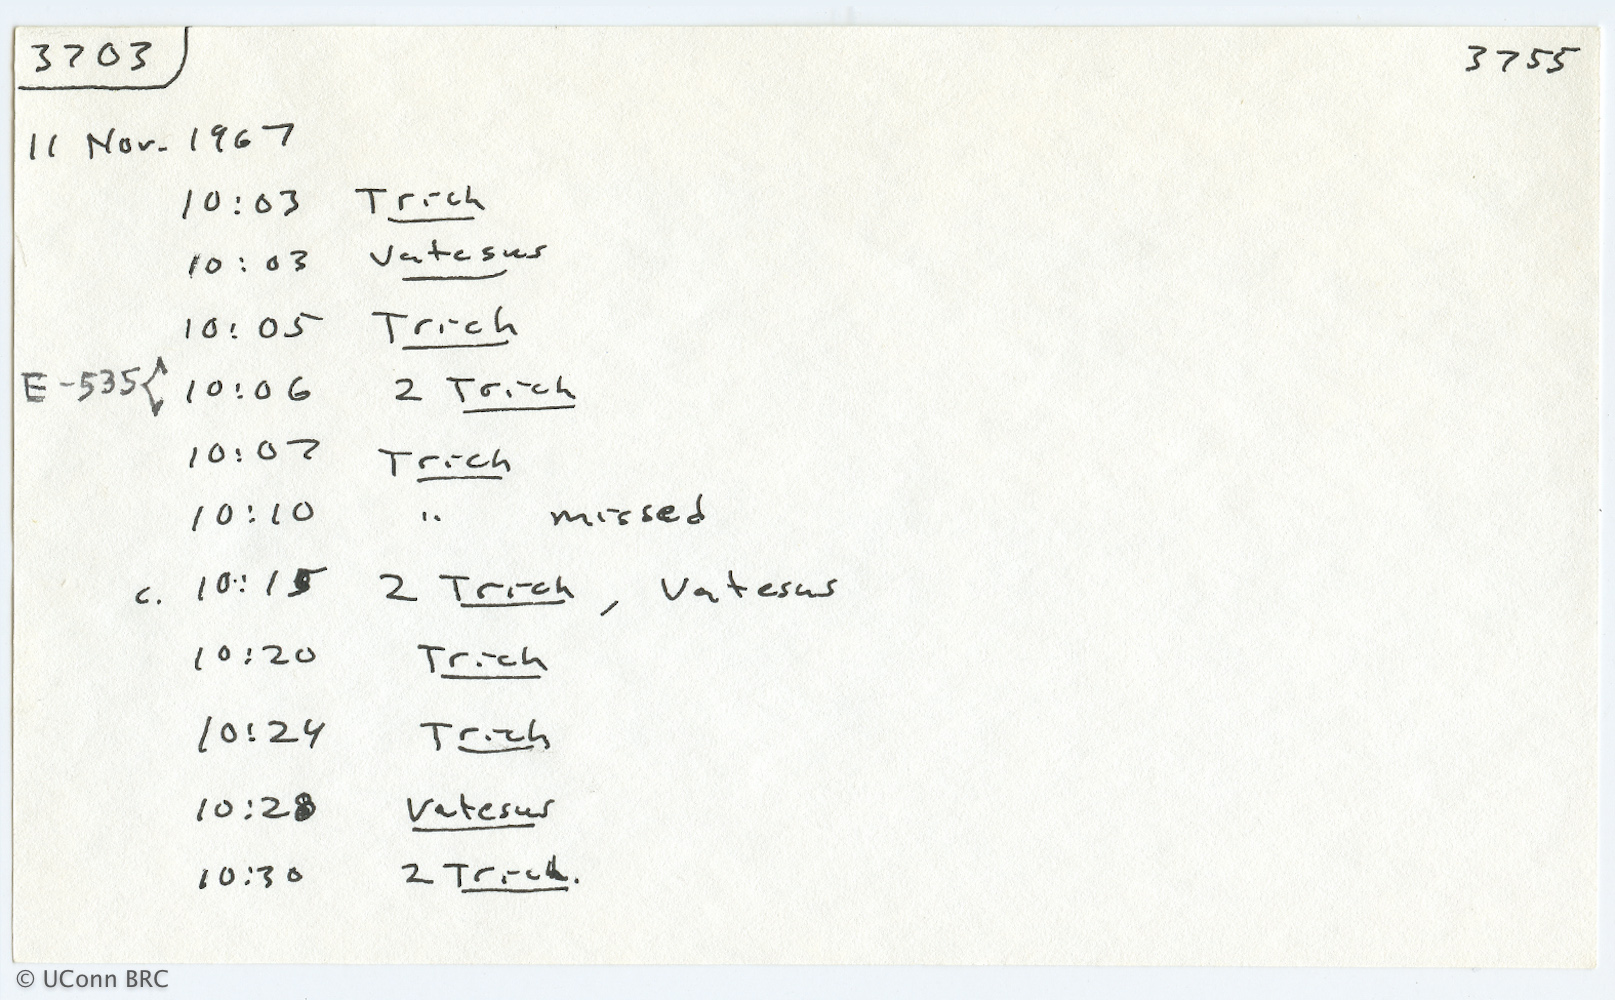 3703 3755
11 Nov. 1967
10:03 Trich
10:03 Vatesus
10:05 Trich
E-535 { 10:06 2 Trich
10:07 Trich
10:10 " missed
c. 10:15 2 Trich, Vatesus
10:20 Trich
10:24 Trich
10:28 Vatesus
10:30 2 Trich.
© UConn BRC